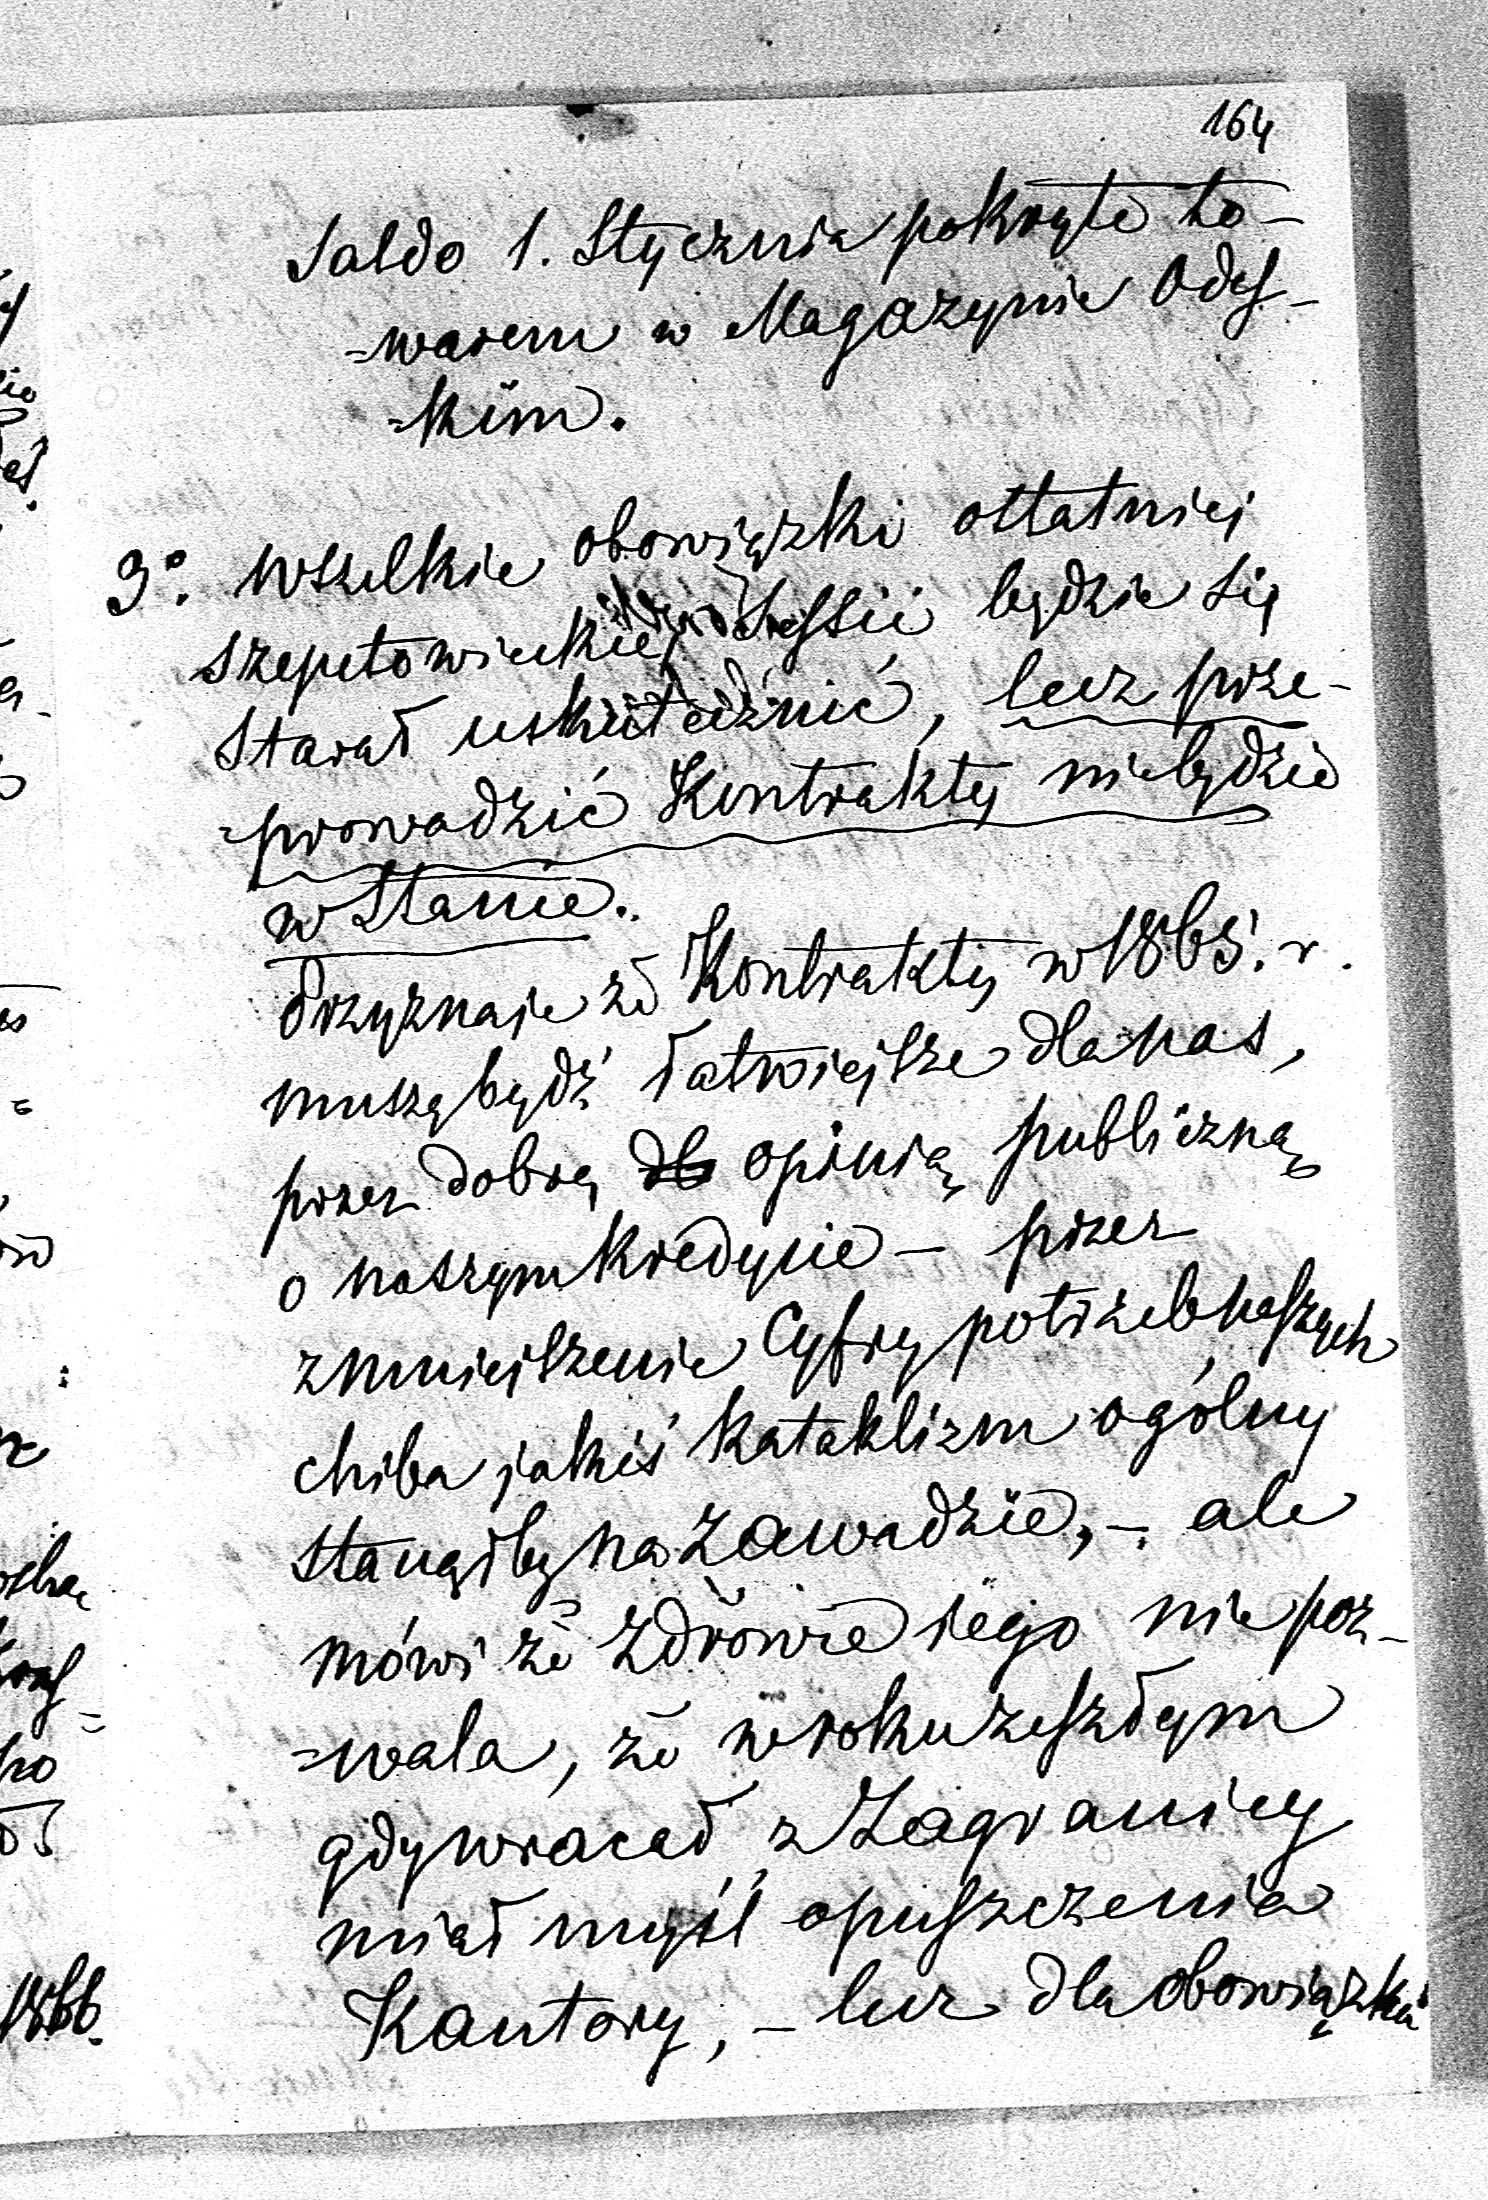 164
Saldo 1. Stycznia pokryte to-
=warem w Magazynie Odes-
=kim.
3°. Wszelkie obowiązki ostatniej
Szepetowieckiej Sessii będzie się
starał uskutecznić, lecz prze-
=prowadzić Kontrakty niebędzie
w Stanie.
Przyznaje że Kontrakty w 1865. r.
muszą bydź łatwiejsze dla nas,
przez dobrą opinią publiczną
o naszym kredycie – przez
zmniejszenie Cyfry potrzeb naszych
chiba jakiś kataklizm ogólny
stanąłby na zawadzie, – ale
mówi że zdrowie jego nie poz-
=wala, że w roku zeszłym
gdy wracał z Zagranicy
miał myśl opuszczenia
Kantory, – lecz dla obowiązku
1866.